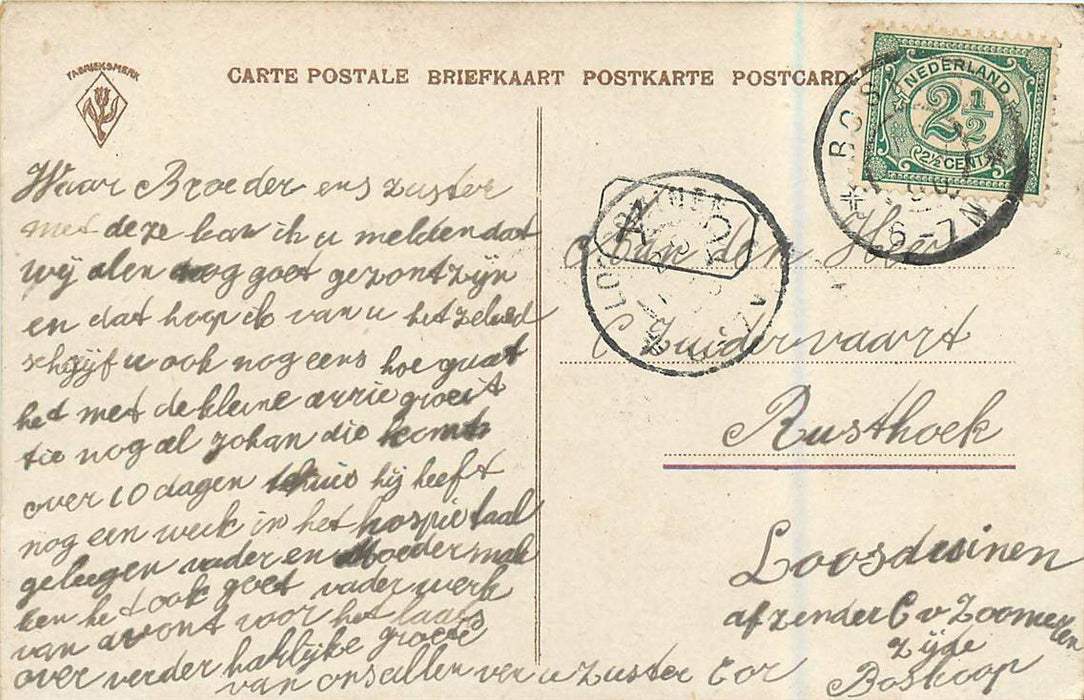 FABRIEKSMERK
CARTE POSTALE BRIEFKAART POSTKARTE POSTCARD
NEDERLAND
2 1/2
2 1/2 CENT
BOS
6-7N
Waar Broeder ens zuster
met deze kan ik u melden dat
wij alen nog goet gezont zijn
en dat hoop ik van u het zelved
schrijf u ook nog eens hoe guat
het met de kleine arrie groeit
tie nog al Johan die komt
over 10 dagen thuis hij heeft
nog een week in het hospietaal
gelegen vader en Moeder
een het ook goet vader werk
van avont voor het laats
over verder hartlijke groete
van ons allen ver u Zuster Cor
Aan den Heer
C Zuidervaart
Rusthoek
Loosduinen
afzender C v Zoomeren
Zijde
Boskoop